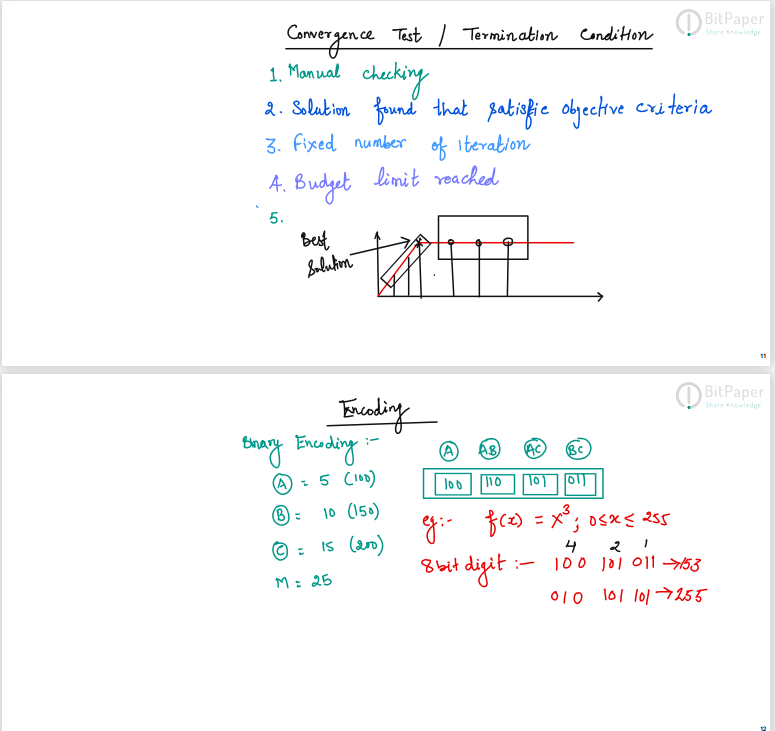 BitPaper
Share Knowledge
Convergence Test / Termination Condition
1. Manual checking
2. Solution found that satisfie objective criteria
3. Fixed number of iteration
4. Budget limit reached
5.
Best
Solution
11
BitPaper
Share Knowledge
Encoding
Binary Encoding :-
A = 5 (100)
B = 10 (150)
C = 15 (200)
M = 25
A AB AC BC
100 110 101 011
eg:- f(x) = x³; 0≤x≤ 255
4 2 1
8 bit digit :- 100 101 011 →153
010 101 101 →255
12